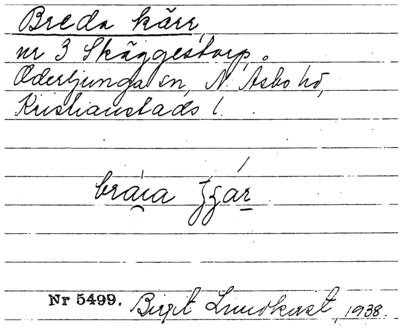 Breda kärr,
nr 3 Skäggestorp,
Oderljunga sn, N. Åsbo hd,
Kristianstads l.
Nr 5499. Birgit Lundkvist, 1938.